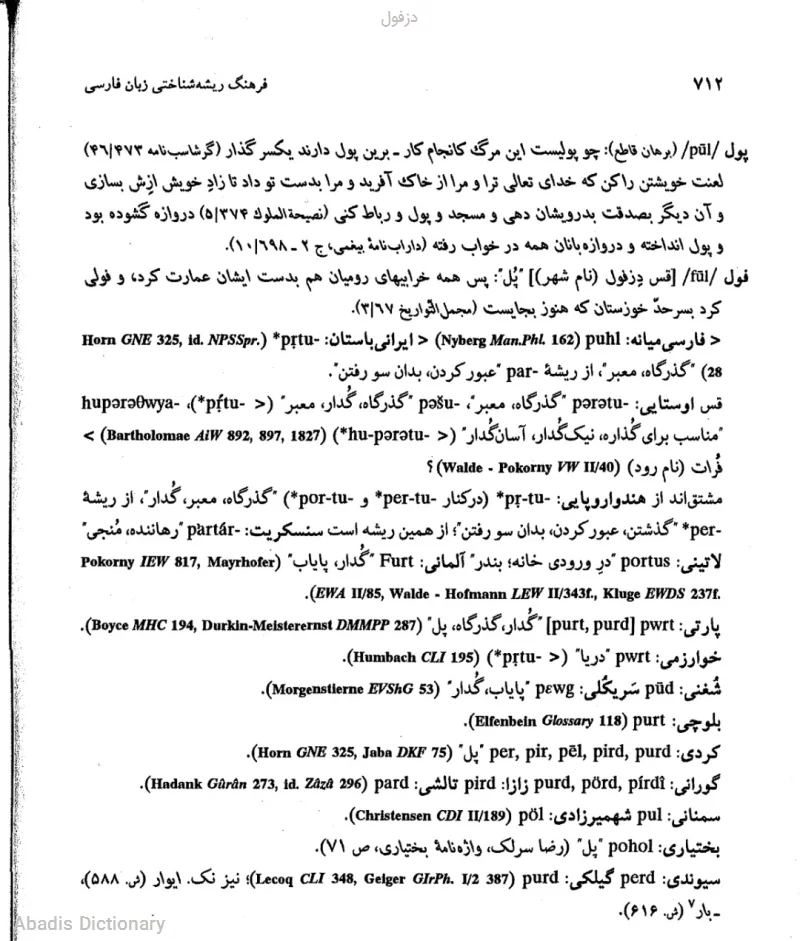 دزفول
۷۱۲ فرهنگ ریشه‌شناختی زبان فارسی
پول /pūl/ (برهان قاطع): چو پولیست این مرگ کانجام کار ـ برین پول دارند یکسر گذار (گرشاسب‌نامه ۴۶/۴۷۳)
لعنت خویشتن راکن که خدای تعالی ترا و مرا از خاک آفرید و مرا بدست تو داد تا زادِ خویش ازش بسازی
و آن دیگر بصدقت بدرویشان دهی و مسجد و پول و رباط کنی (نصیحةالملوك ۵/۳۷۴) دروازه گشوده بود
و پول انداخته و دروازه‌بانان همه در خواب رفته (داراب‌نامۀ بیغمی، ج ۲ ـ ۱۰/۶۹۸).
فول /fūl/ [قس دِزفول (نام شهر)] "پُل": پس همه خرابیهای رومیان هم بدست ایشان عمارت کرد، و فولی
کرد بسرحدّ خوزستان که هنوز بجایست (مجمل‌التواریخ ۳/۶۷).
< فارسی‌میانه: puhl (Nyberg Man.Phl. 162) < ایرانی‌باستان: *pṛtu- (Horn GNE 325, id. NPSSpr.
28) "گذرگاه، معبر"، از ریشۀ par- "عبور کردن، بدان سو رفتن".
قس اوستایی: pərətu- "گذرگاه، معبر"، pəšu- "گذرگاه، گُدار، معبر" (< *pṛ́tu-)، hupərəθwya-
"مناسب برای گذاره، نیک‌گُدار، آسان‌گُدار" (< *hu-pərətu-) (Bartholomae AiW 892, 897, 1827) <
فُرات (نام رود) (Walde - Pokorny VW II/40) ؟
مشتق‌اند از هندواروپایی: *pṛ-tu- (درکنار *per-tu- و *por-tu-) "گذرگاه، معبر، گُدار"، از ریشۀ
*per- "گذشتن، عبور کردن، بدان سو رفتن"؛ از همین ریشه است سنسکریت: pártár- "رهاننده، مُنجی"
لاتینی: portus "درِ ورودی خانه؛ بندر" آلمانی: Furt "گُدار، پایاب" (Pokorny IEW 817, Mayrhofer
EWA II/85, Walde - Hofmann LEW II/343f., Kluge EWDS 237f.).
پارتی: pwrt [purt, purd] "گُدار، گذرگاه، پل" (Boyce MHC 194, Durkin-Meisterernst DMMPP 287).
خوارزمی: pwrt "دریا" (< *pṛtu-) (Humbach CLI 195).
شُغنی: pūd سَریکُلی: pɛwg "پایاب، گُدار" (Morgenstierne EVShG 53).
بلوچی: purt (Elfenbein Glossary 118).
کردی: per, pir, pēl, pird, purd "پل" (Horn GNE 325, Jaba DKF 75).
گورانی: purd, pörd, pírdî زازا: pird تالشی: pard (Hadank Gûrân 273, id. Zâzâ 296).
سمنانی: pul شهمیرزادی: pöl (Christensen CDI II/189).
بختیاری: pohol "پل" (رضا سرلک، واژه‌نامۀ بختیاری، ص ۷۱).
سیوندی: perd گیلکی: purd (Lecoq CLI 348, Geiger GIrPh. I/2 387)؛ نیز نک. ایوار (ش. ۵۸۸)،
ـ بار۷ (ش. ۶۱۶).
Abadis Dictionary